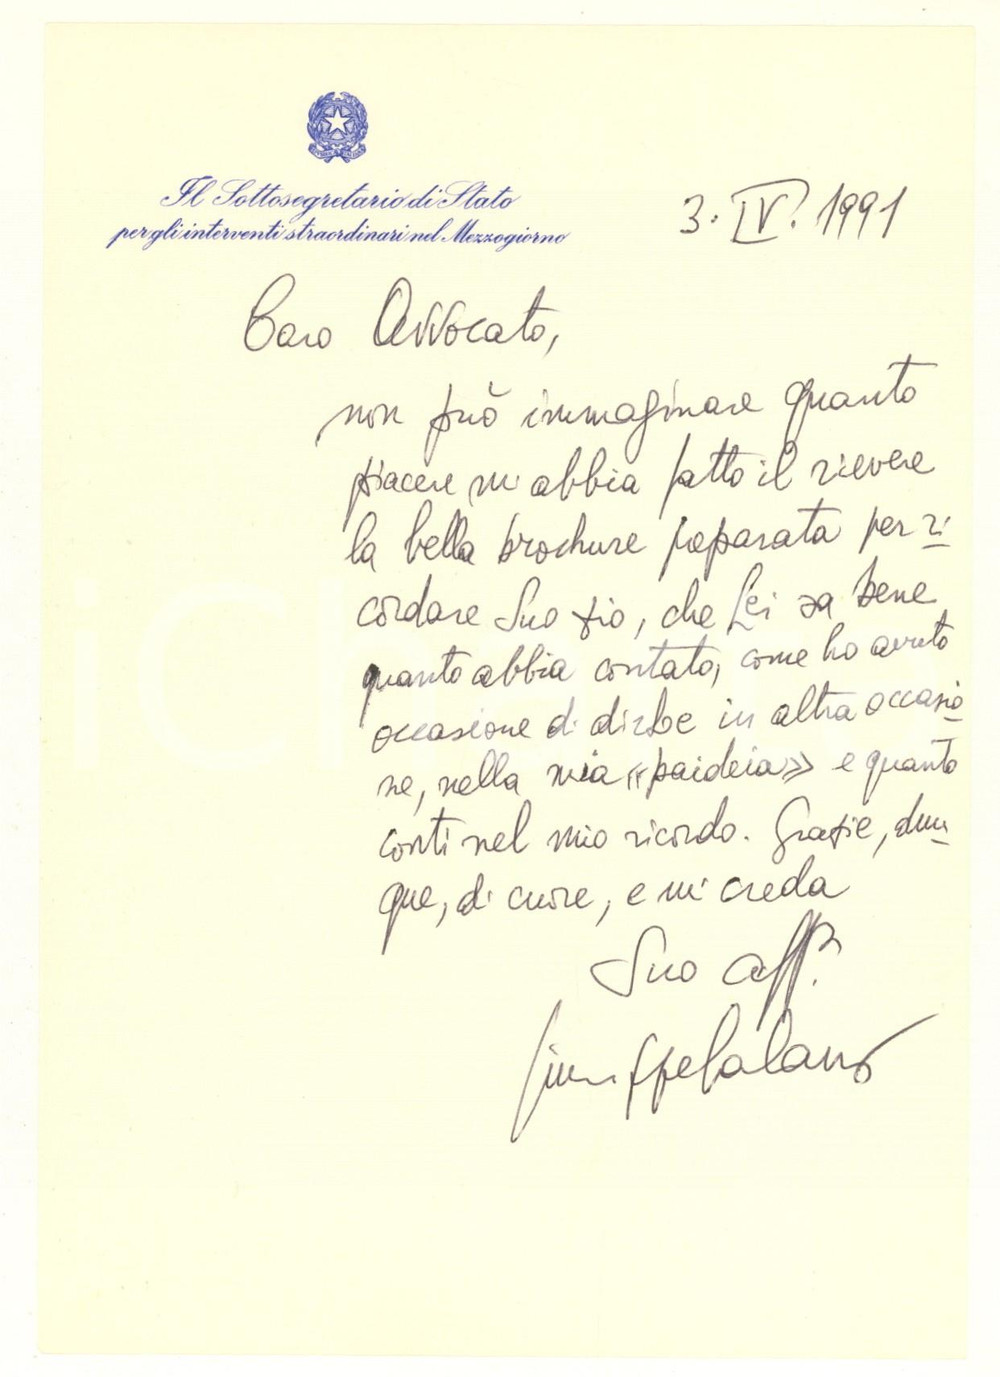 Il Sottosegretario di Stato
per gli interventi straordinari nel Mezzogiorno
3. IV. 1991
Caro Avvocato,
non può immaginare quanto
piacere mi abbia fatto il ricevere
la bella brochure preparata per ri-
cordare Suo zio, che Lei sa bene
quanto abbia contato, come ho avuto
occasione di dirLe in altra occasio-
ne, nella mia «paideia» e quanto
conti nel mio ricordo. Grazie, dun-
que, di cuore, e mi creda
Suo aff.
Giuseppe Galasso